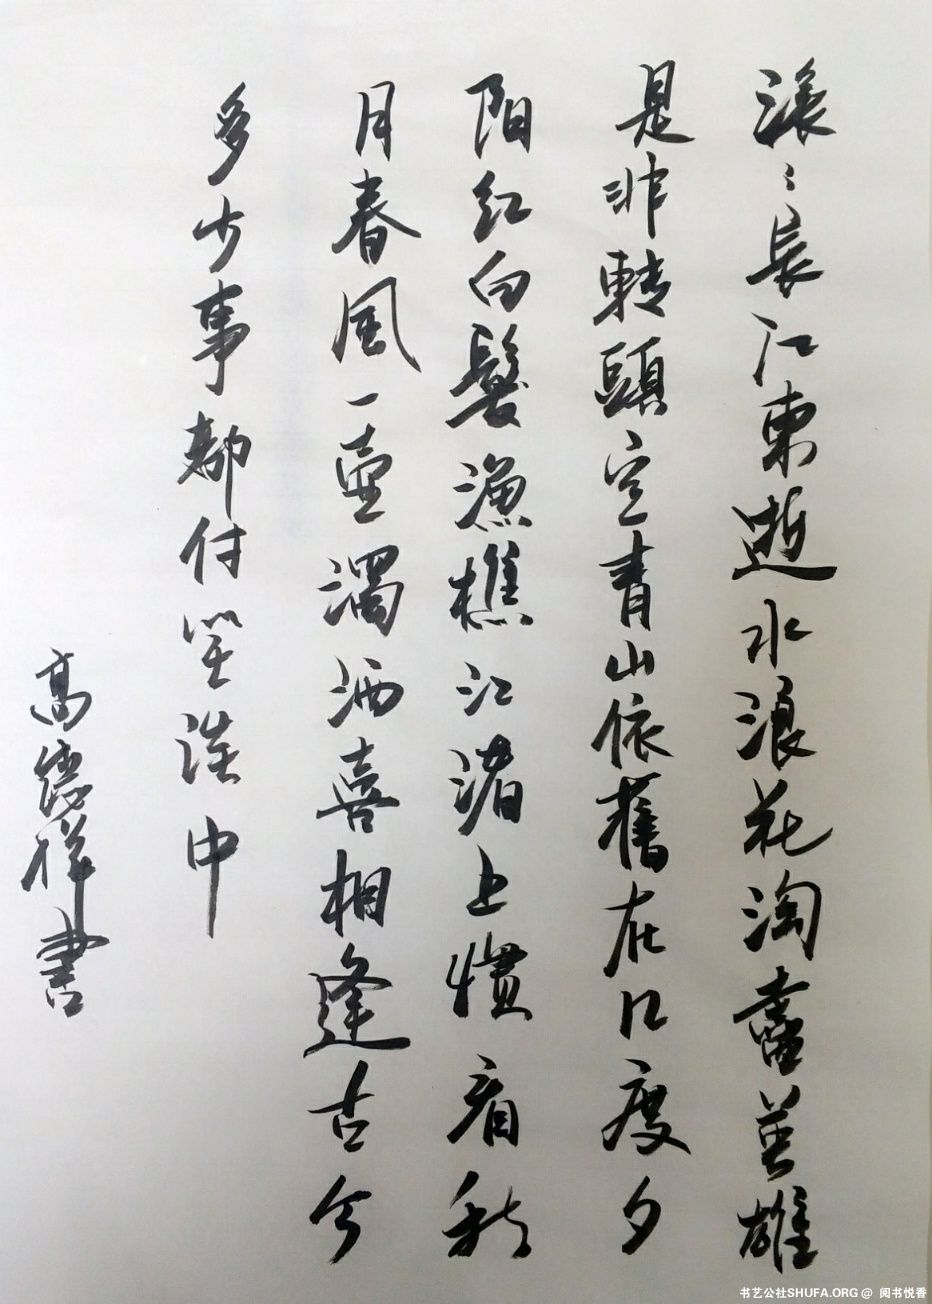 滚〻長江東逝水浪花淘盡英雄
是非轉頭空青山依舊在几度夕
阳红白髮漁樵江渚上慣看秋
月春風一壺濁酒喜相逢古今
多少事都付笑談中
高德祥書
书艺公社SHUFA.ORG @ 阅书悦香